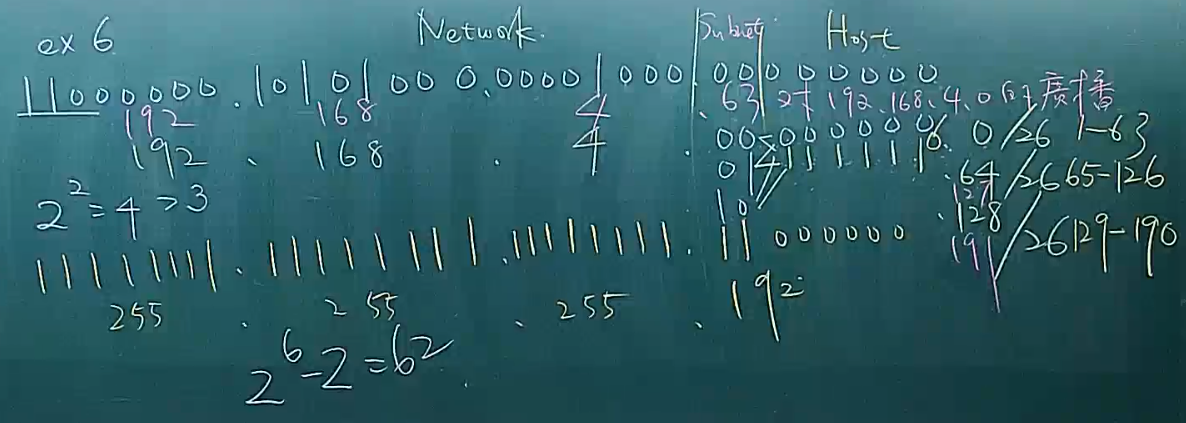 ex 6 Network. Subnet Host
11000000.10101000.00000100 0.00000000
192 168 4 .63 对 192.168.4.0 的廣播
192 . 168 . 4 . 00 000000 0/26 1-63
01 111111 .64/26 65-126
127
2² = 4 > 3 10 .128/26 129-190
191
11111111.11111111.11111111.11 000000
255 . 255 . 255 . 192
2⁶-2=62